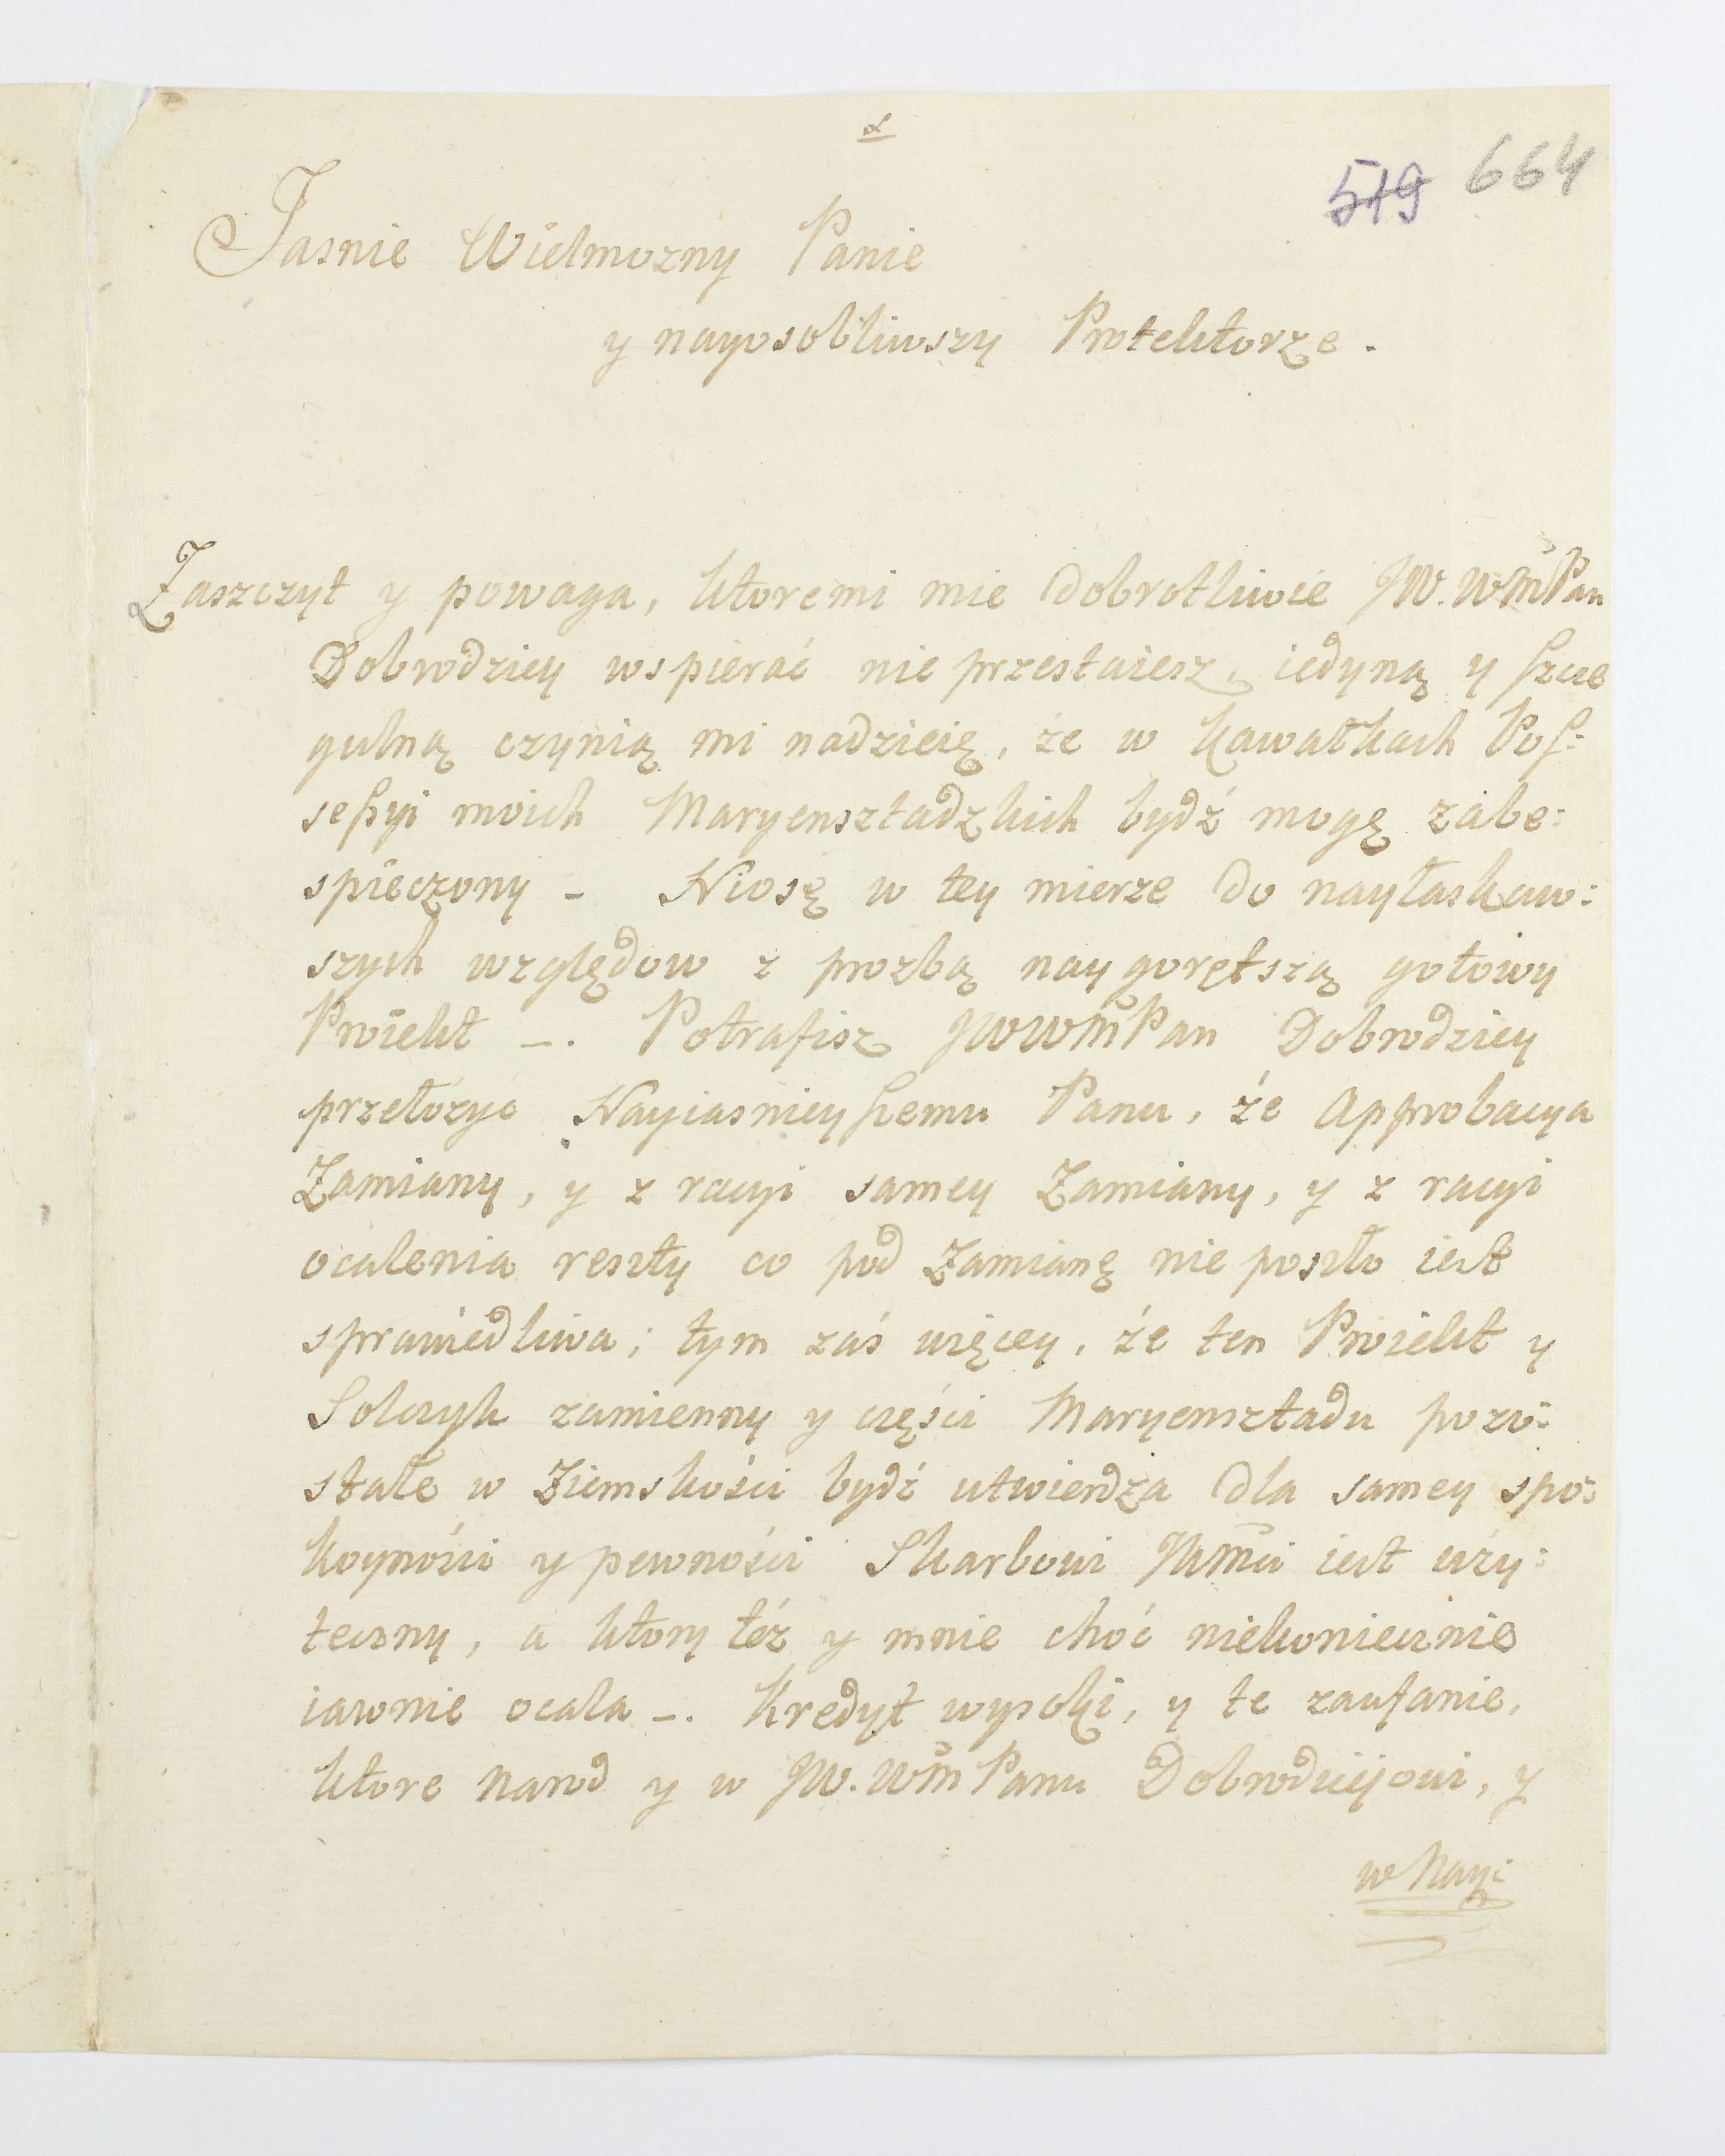 519 664
Jasnie Wielmozny Panie
y nayosobliwszy Protektorze.
Zaszczyt y powaga, ktoremi mie Dobrotliwie JW. WM Pan
Dobrodziey wspierać nie przestaiesz, iedyną y szcze
gulną czynią mi nadzieię, że w kawałkach Pos:
sessyi moich Maryensztadzkich bydź mogę zabe:
spieczony - Niosę w tey mierze do nayłaskaw:
szych względow z prozbą naygorętszą gotowy
Proiekt -. Potrafisz JWWM Pan Dobrodziey
przełożyć Nayiasnieyszemu Panu, że Approbacya
Zamiany, y z racyi samey Zamiany, y z racyi
ocalenia reszty co pod Zamianę nie poszło iest
sprawiedliwa; tym zaś więcey, że ten Proiekt y
Solczyk zamienny y części Maryensztadu pozo:
stałe w Ziemskości bydź utwierdza dla samey spo:
koyności y pewności Skarbowi JKMci iest uży:
teczny, a ktory téż y mnie choć niekoniecznie
iawnie ocala -. Kredyt wysoki, y te zaufanie,
ktore narod y w JW. WM Panu Dobrodzieiowi, y
w Nay: